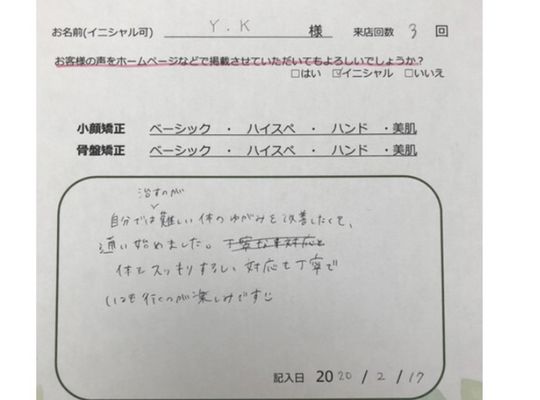 お名前(イニシャル可) Y.K 様 来店回数 3 回
お客様の声をホームページなどで掲載させていただいてもよろしいでしょうか?
□はい ☑イニシャル □いいえ
小顔矯正 ベーシック ・ ハイスペ ・ ハンド ・美肌
骨盤矯正 ベーシック ・ ハイスペ ・ ハンド ・美肌
治すのが
自分では難しい体のゆがみを改善したくて、
通い始めました。丁寧な対応と
体もスッキリするし、対応も丁寧で
いつも行くのが楽しみです
記入日 2020 / 2 / 17